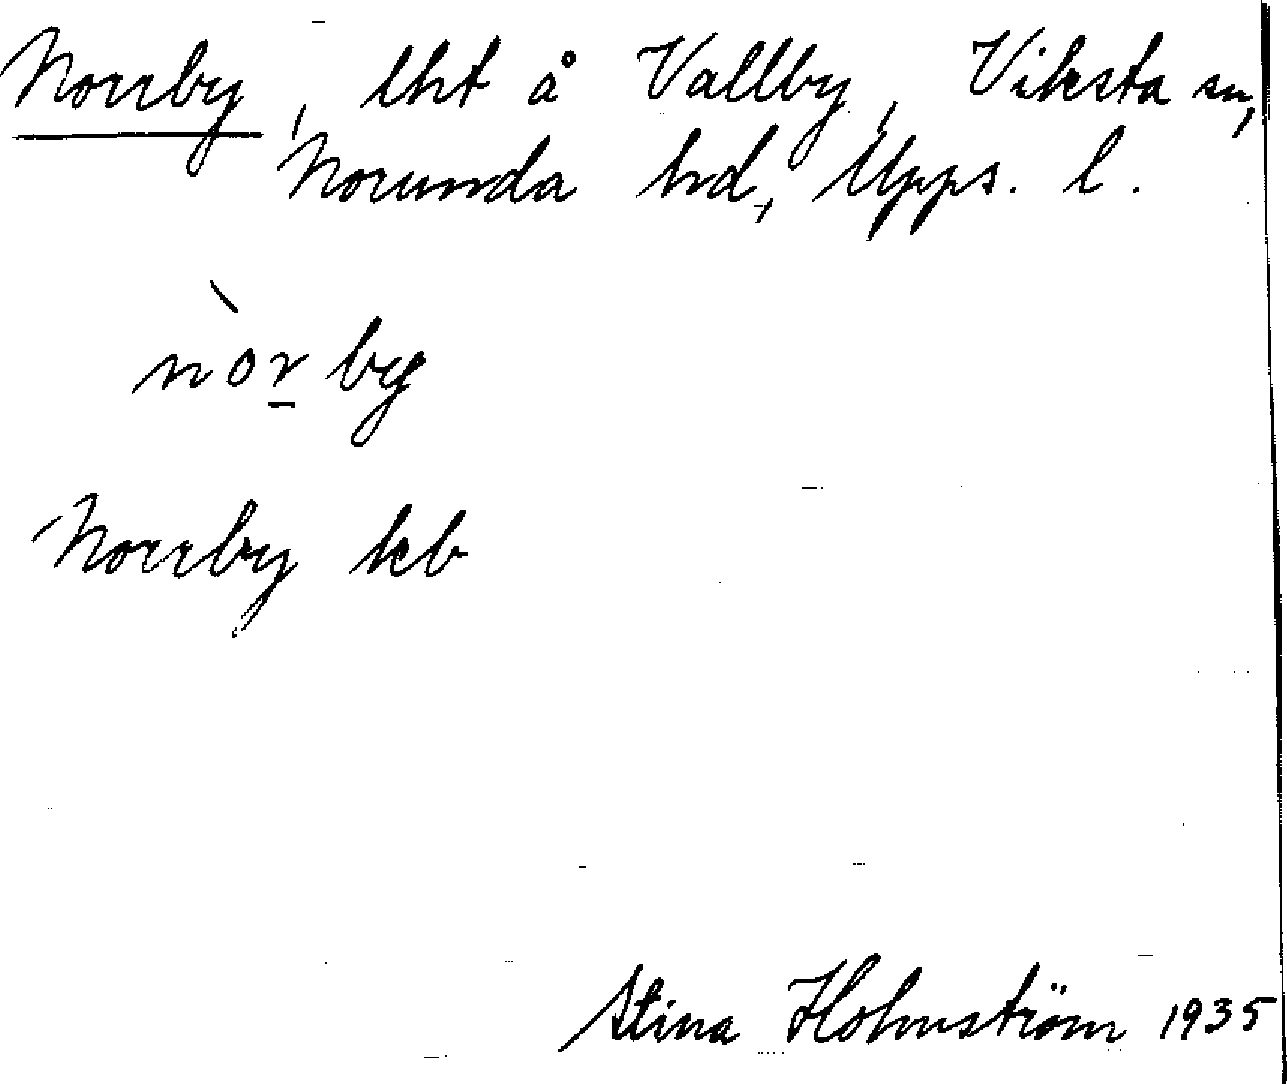 Norrby, lht å Vallby, Viksta sn,
Norunda hd, Upps. l.
nòr̲by
Norrby kb
Stina Holmström 1935